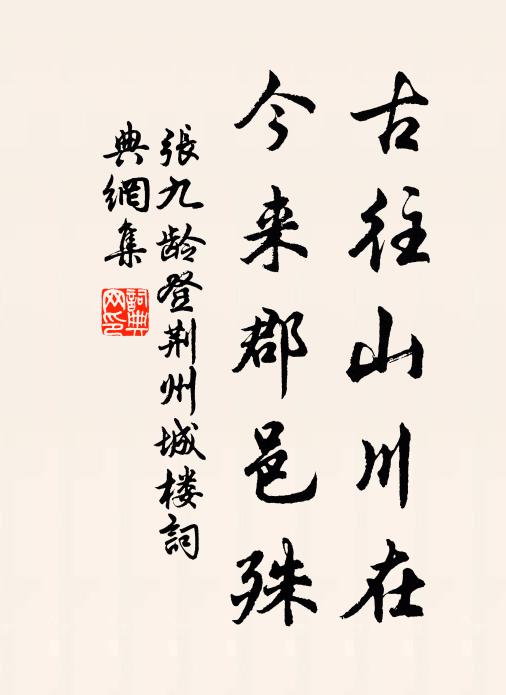 古往山川在
今来郡邑殊
张九龄登荆州城楼词
典網集
詞典
网印